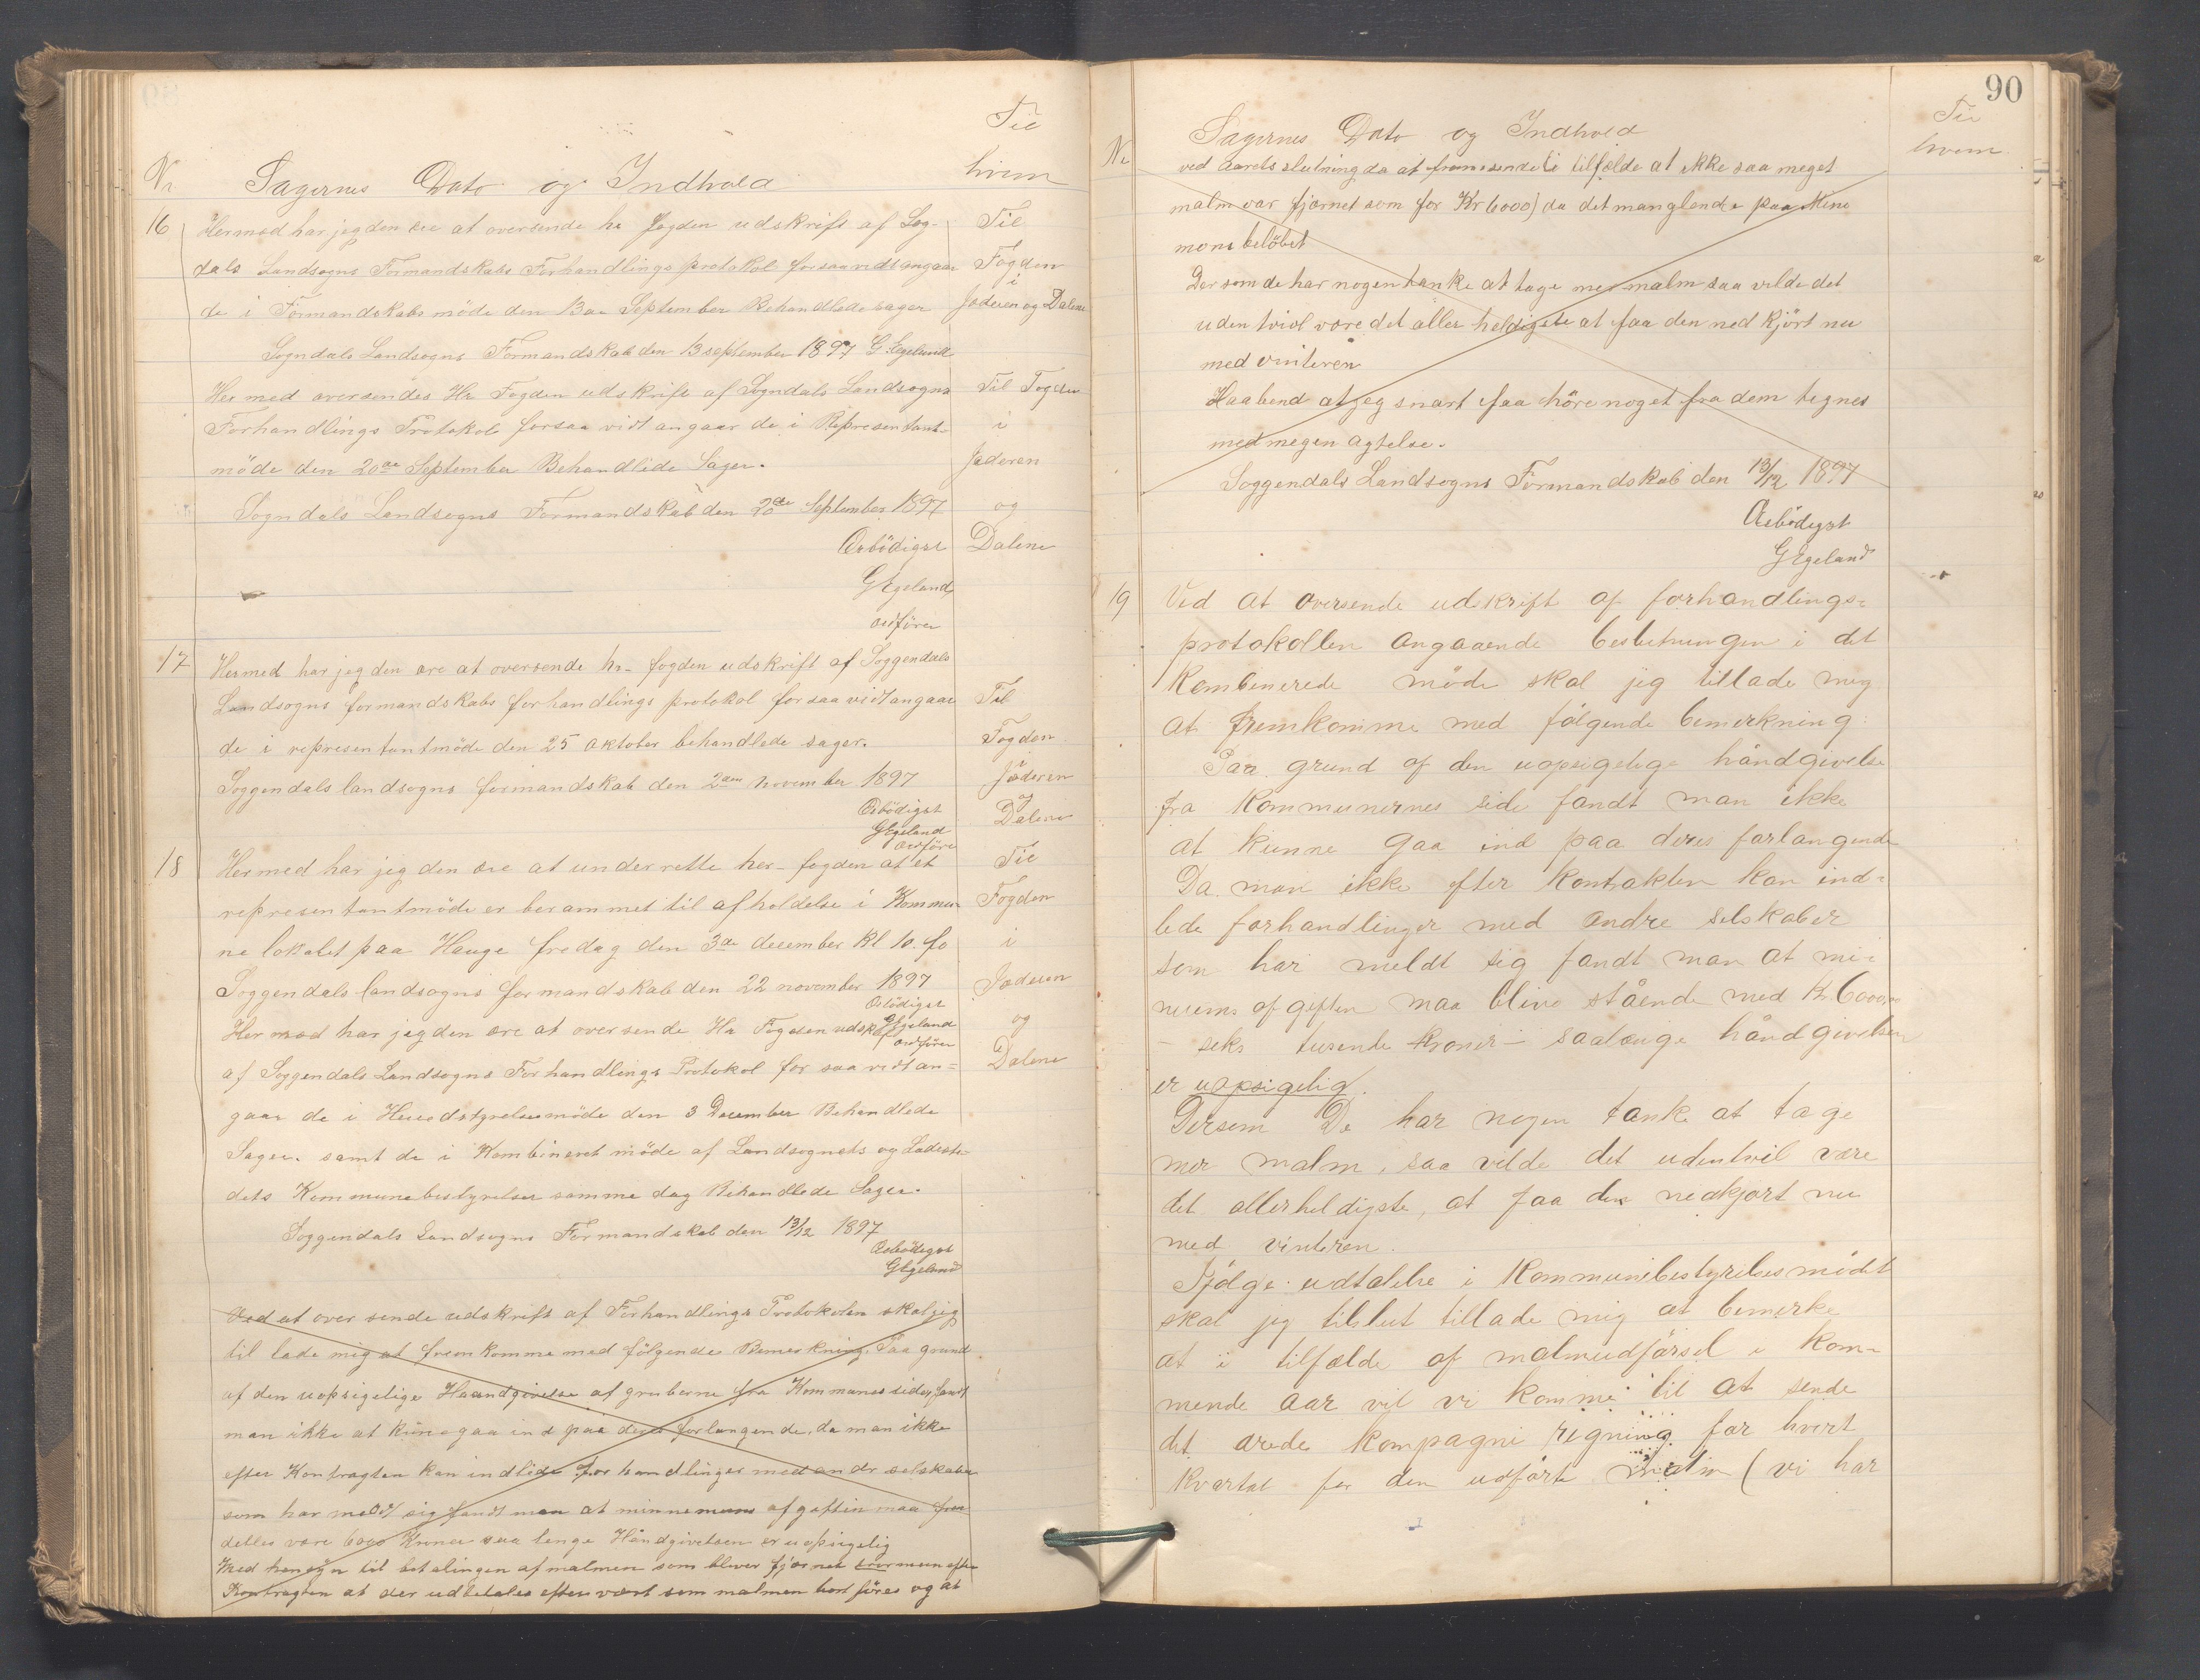 Til
Nr Sagernes Dato og Indhold hvem
16 Hermed har jeg den ære at oversende hr Fogden udskrift af Sog- Til
dals Landsogns Formandskabs Forhandlings protokol forsaavidt angaar Fogden
i
de i Formandskabs möde den 13de September Behandlede sager Jæderen og Dalene
Sogndals Landsogns Formandskab den 13 september 1897 G Egeland
Hermed oversendes Hr Fogden udskrift af Sogndals Landsogns Til Fogden
Forhandlings Protokol forsaa vidt angaar de i Representant- i
möde den 20de September Behandlede Sager. Jæderen
Sogndals Landsogns Formandskab den 20de September 1897 og
Ærbödigst Dalene
GEgeland
ordförer
17 Hermed har jeg den ære at oversende hr- fogden udskrift af Soggendals
Landsogns formandskabs forhandlings protokol forsaavidt angaar Til
de i representantmöde den 25 oktober behandlede sager. Fogden
Soggendals landsogns formandskab den 2den november 1897 Jæderen
og
Ærbödigst Dalene
GEgeland
ordförer
18 Hermed har jeg den ære at underrette her- fogden at et Til
representantmöde er berammet til afholdelse i Kommu- Fogden
ne lokalet paa Hauge fredag den 3de december Kl 10. fo i
Soggendals landsogns formandskab den 22 november 1897 Jæderen
Ærbödigst
GEgeland
ordförer
Hermed har jeg den ære at oversende Hr Fogden udskrift og
af Soggendals Landsogns Forhandlings Protokol for saa vidt an= Dalene
gaar de i Herredstyrelsemöde den 3 December Behandlede
Sager. samt de i Kombineret möde af Landsognets og Ladeste-
dets Kommunebestyrelser samme dag Behandlede Sager.
Soggendals Landsogns Formandskab den 13/12 1897
Ærbödigst
GEgeland
Ved at over sende udskrift af Forhandlings Protokolen skal jeg
til lade mig at frem komme med fölgende Bemerkning. Paa grund
af den uopsigelige Haandgivelse af gruberne fra Kommunes sider fandt
man ikke at kune gaa ind paa deres forlangende, da man ikke
efter Kontragten kan indlide for handlinger med andr selskaber
som har meldt sig fandt man at minnemums afgaftin maa frem
delles være 6000 Kroner saa lenge Håndgivelsen er uopsigelig
Med hensyn til betalingen af malmen som bliver fjærnet mun efter
Kontragten at der udbetales efter vært som malmen bort föres og at
90
Til
hvem
Nr Sagernes Dato og Indhold
ved aarets slutning da at fremsende (i tilfælde at ikke saa meget
malm var fjærnet som for Kr 6000) da det manglende paa Mine
mons belöbet
Der som de har nogen tanke at tage mer malm saa vilde det
uden tviol være det aller heldigste at faa den ned kjört nu
med vinteren
Haabend at jeg snart faa höre noget fra dem tegnes
med megen agtelse.
Soggendals Landsogns Formandskab den 13/12 1897
Ærbödigst
GEgeland
19 Ved at oversende udskrift af forhandlings=
protokollen angaaende beslutningen i det
Kombinerede möde skal jeg tillade mig
at fremkomme med fölgende bemerkning:
Paa grund af den uopsigelige håndgivelse
fra Kommunernes side fandt man ikke
at kunne gaa ind paa deres forlangende
Da man ikke efter Kontrakten kan ind=
lede forhandlinger med andre selskaber
som har meldt sig fandt man at mi=
nuums afgiften maa blive stående med Kr. 6000,00
– seks tusende kroner – saalænge håndgivelsen
er uopsigelig.
Dersom De har nogen tanke at tage
mer malm, saa vilde det udentvil være
det allerheldigste, at faa den nedkjørt nu
med vinteren.
Ifølge udtalelse i Kommunebestyrelsesmödet
skal jeg tilslut tillade mig at bemerke
at i tilfælde af malmudførsel i kom-
mende aar vil vi komme til at sende
det ærede kompagni regning for hvert
kvartal for den udførte malm (vi har